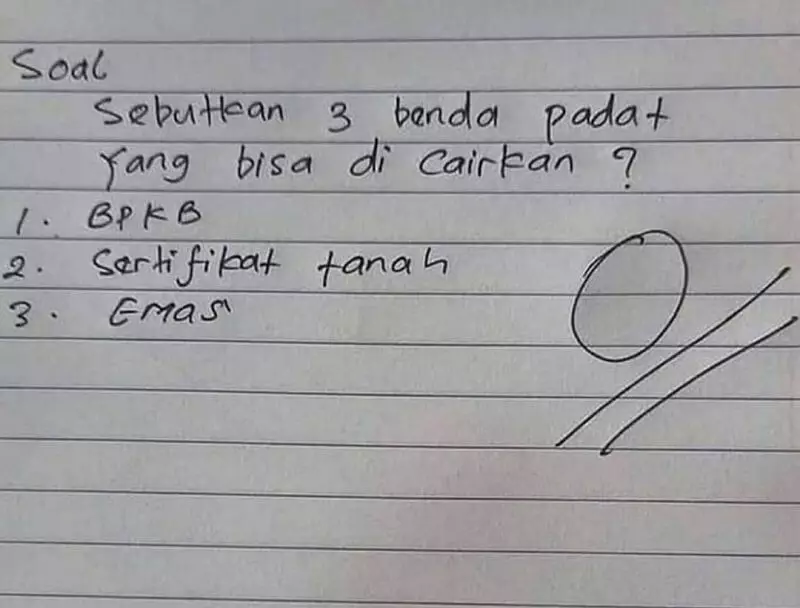 Soal
Sebutkan 3 benda padat
Yang bisa di Cairkan ?
1. BPKB
2. Sertifikat tanah
3. Emas
0